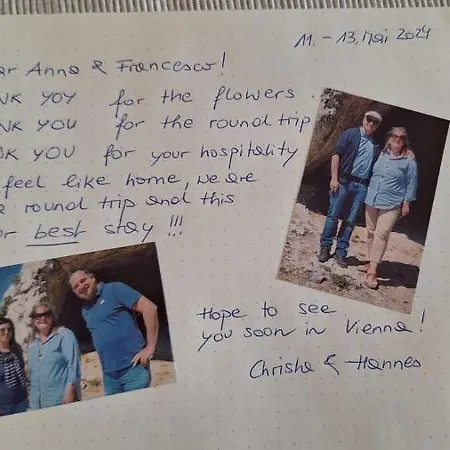 11. - 13. Mai 2024
ar Anna & Francesco!
NK YOY for the flowers
NK YOU for the round trip
NK YOU for your hospitality
feel like home, we are
round trip and this
ur best stay !!!
Hope to see
you soon in Vienna!
Christa & Hannes